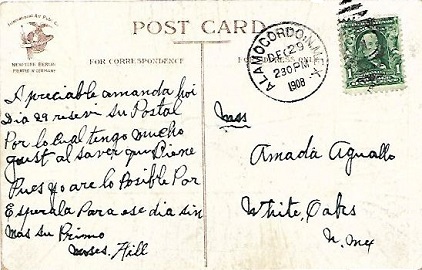 POST CARD
International Art Pub. Co.
NEW YORK BERLIN
PRINTED IN GERMANY
FOR CORRESPONDENCE
ALAMOGORDO, N.MEX
DEC 29
230 PM
1908
Apreciable amanda hoi
Dia 29 resevi su Postal
Por lo cual tengo mucho
gust al saver que Biene
Pues Yo are lo Posible Por
Esperala Para ese dia sin
mas su Primo
Moses. Hill
Miss
Amada Aguallo
White, Oaks
N. Mex